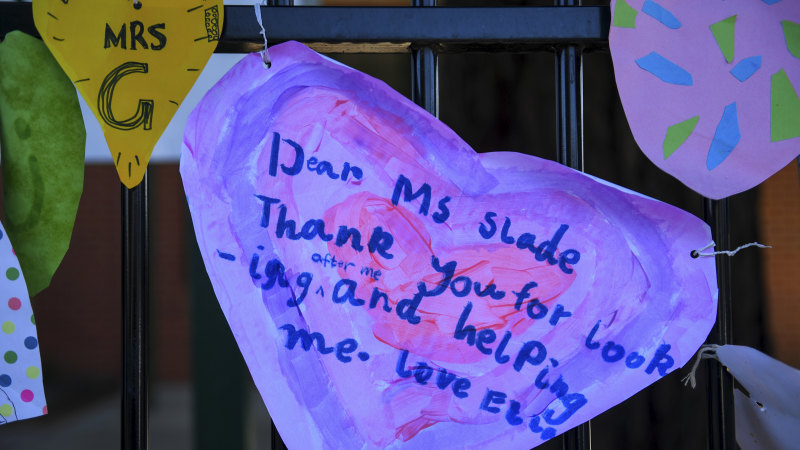 MRS
G
Dear Ms Slade
Thank you for look
-ing after me ^ and helping
me. Love